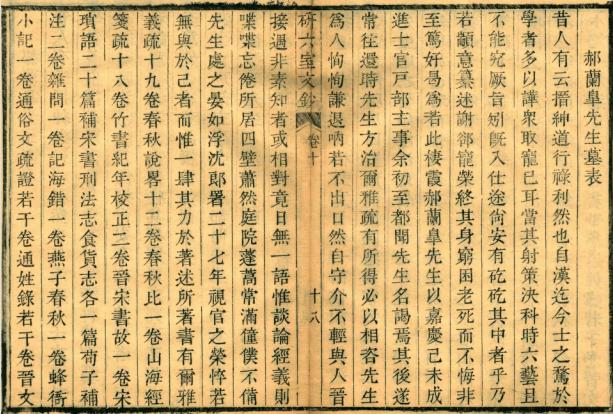 郝蘭皐先生墓表
昔人有云搢紳道行祿利然也自漢迄今士之騖於
學者多以譁衆取寵已耳當其射策決科時六藝且
不能究厥言矧旣入仕途尙安有矻矻其中者乎乃
若顓意墓述謝卻寵榮終其身窮困老死而不悔非
至篤好曷爲若此棲霞郝蘭皐先生以嘉慶己未成
進士官戸部主事余初至都聞先生名謁焉其後遂
常往還時先生方治爾雅疏有所得必以相咨先生
爲人恂恂謙退呐若不出口然自守介不輕與人晉
接遇非素知者或相對竟日無一語惟談論經義則
研六室文鈔
卷十
十八
喋喋忘倦所居四壁蕭然庭院蓬蒿常滿僮僕不備
先生處之晏如浮沈郞署二十七年視官之榮悴若
無與於己者而惟一肆其力於著述所著書有爾雅
義疏十九卷春秋說畧十二卷春秋比一卷山海經
箋疏十八卷竹書紀年校正三卷晉宋書故一卷宋
瑣語二十篇補宋書刑法志食貨志各一篇荀子補
注二卷雜問一卷記海錯一卷燕子春秋一卷蜂衙
小記一卷通俗文疏證若干卷通姓錄若干卷晉文